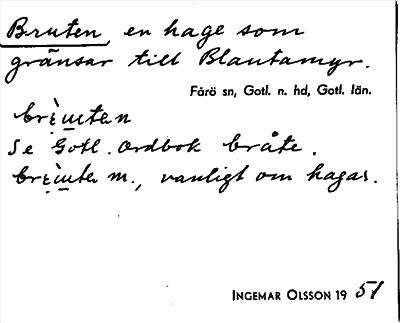 Bruten, en hage som
gränsar till Blautamyr.
Fårö sn, Gotl. n. hd, Gotl. län.
Se Gotl. Ordbok bråte.
m., vanligt om hagar.
Ingemar Olsson 19 51